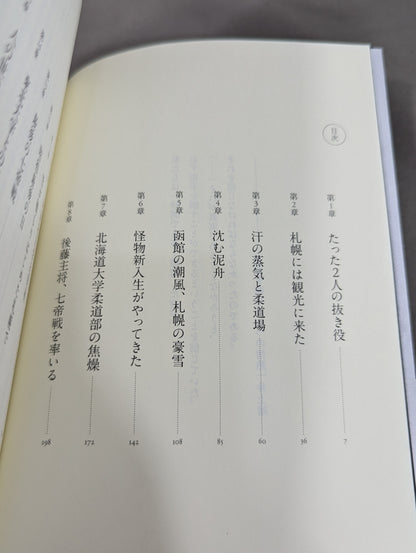 目次
第1章 たった2人の抜き役 7
第2章 札幌には観光に来た 36
第3章 汗の蒸気と柔道場 60
第4章 沈む泥舟 85
第5章 函館の潮風、札幌の豪雪 108
第6章 怪物新入生がやってきた 142
第7章 北海道大学柔道部の焦燥 172
第8章 後藤主将、七帝戦を率いる 198